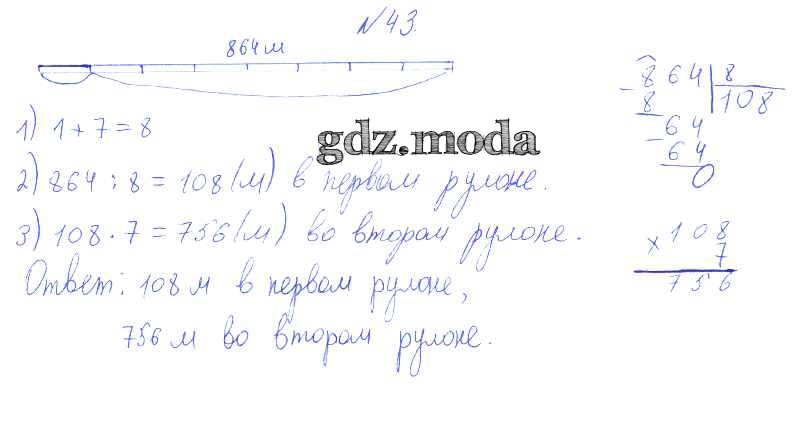 №43.
864 м
1) 1 + 7 = 8
2) 864 : 8 = 108 (м) в первом рулоне.
3) 108 · 7 = 756 (м) во втором рулоне.
Ответ: 108 м в первом рулоне,
756 м во втором рулоне.
gdz.moda
- 864 | 8
8 | 108
- 64
64
0
× 108
7
756